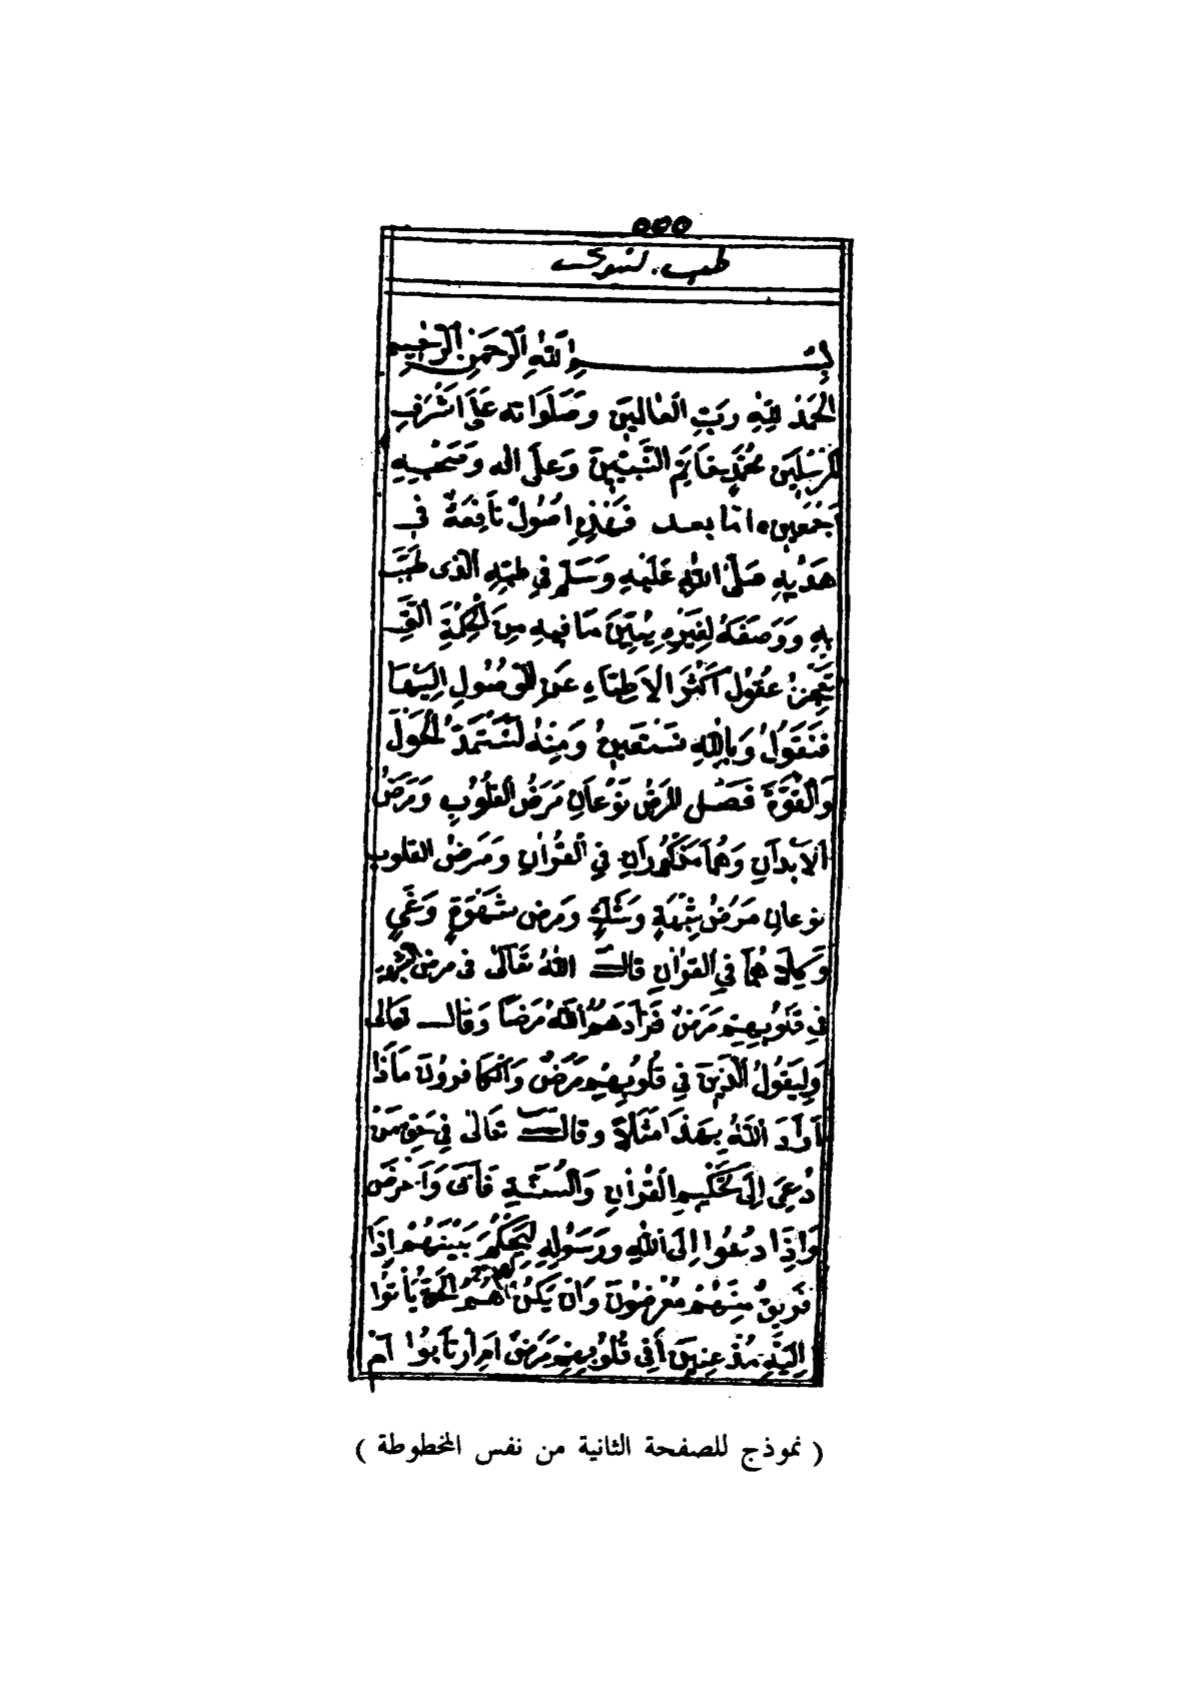 ٥٥٥
طب نبوى
بِسْمِ اللهِ الرَّحْمٰنِ الرَّحِيمِ
الْحَمْدُ لِلّٰهِ رَبِّ الْعٰالَمِينَ وَصَلَوَاته عَلَى اَشْرَفِ
لمُرْسَلِينَ مُحَمَّدٍ خَاتَمِ النَّبِيِّينَ وَعَلَى اله وَصَحْبِهِ
اَجْمَعِينَ اما بعد فَهٰذِهِ اُصُولٌ نَافِعَةٌ فِي
هَدْيِهِ صَلَّى اللهُ عَلَيْهِ وَسَلَّمَ فِي طِبِّهِ الَّذى طَبَّ
بِهِ وَوَصَفَهُ لِغَيْرِهِ يُبَيِّنَ مَا فِيهِ مِنَ الْحِكْمَةِ الَّتِي
تَعْجِزُ عُقُولُ اَكْثَرِ الْاَطِبَّاءِ عَنِ الْوُصُولِ اِلَيْهَا
فَنَقُولُ وَبِاللهِ نَسْتَعِينُ وَمِنْهُ نَسْتَمِدُّ الْحَوْلَ
وَالْقُوَّةَ فَصْل المَرَضُ نَوْعَانِ مَرَضُ الْقُلُوبِ وَمَرَضُ
الْاَبْدَانِ وَهُمَا مَذْكُورَانِ فِي الْقُرْاٰنِ وَمَرَضُ القلوب
نوعانِ مَرَضُ شُبْهَةٍ وَشَكٍّ وَمرض شَهْوَةٍ وَغَيٍّ
وَكِلَا هُمَا فِي الْقُرْاٰنِ قال اللهُ تَعَالَى فى مرض الشبهة
فِي قُلُوبِهِمْ مَرَضٌ فَزَادَهُمُ اللهُ مَرَضًا وَقال تعالى
وَلِيَقُولَ الَّذِينَ فِي قُلُوبِهِمْ مَرَضٌ وَالْكَافِرُونَ مَاذَا
اَرَادَ اللهُ بِهٰذَا مَثَلًا وقال تَعَالى فِي حَقِّ مَنْ
دُعِيَ اِلَى تَحْكِيمِ الْقُرْاٰنِ وَالسُّنَّةِ فَاَبَى وَاَعْرَضَ
وَاِذَا دُعُوا اِلَى اللهِ وَرَسُولِهِ لِيَحْكُمَ بَيْنَهُمْ اِذَا
فَرِيقٌ مِنْهُمْ مُعْرِضُونَ وَاِنْ يَكُنْ لَهُمُ الْحَقُّ يَأْتُوا
اِلَيْهِ مُذْعِنِينَ اَفِي قُلُوبِهِمْ مَرَضٌ اَمِ ارْتَابُوا اَمْ
( نموذج للصفحة الثانية من نفس المخطوطة )